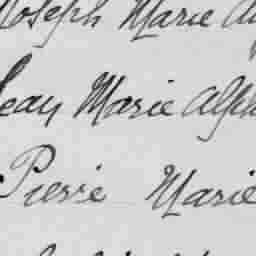 Joseph Marie
Jean Marie Alph
Pierre Marie